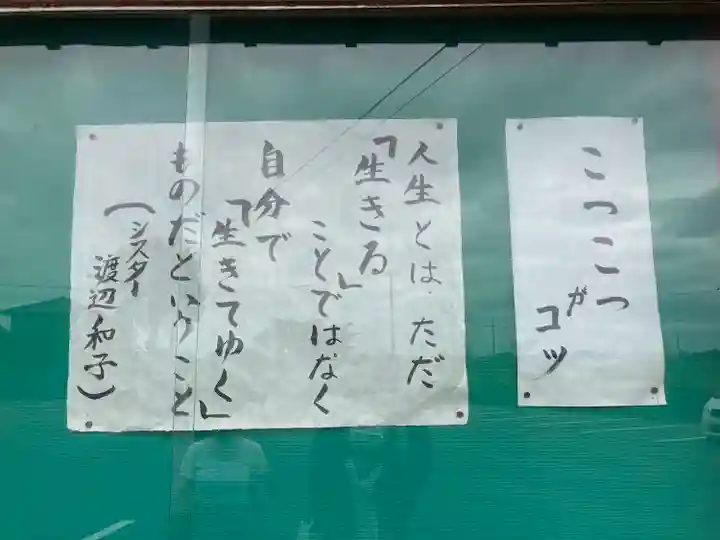 こつこつ
が
コツ
人生とは、ただ
「生きる」
ことではなく
自分で
「生きてゆく」
ものだということ
(シスター
渡辺和子)